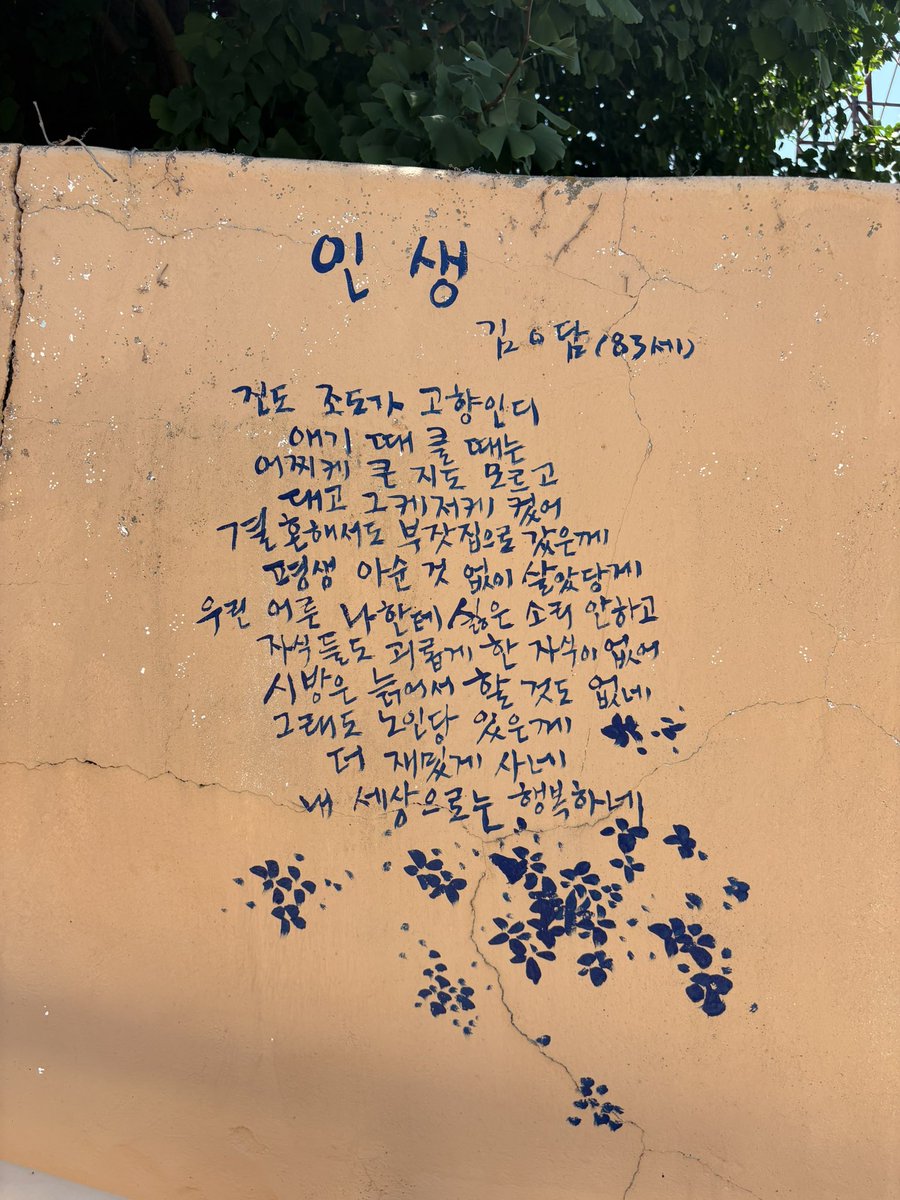 인생
김ㅇ담(83세)
진도 조도가 고향인디
애기 때 클 때는
어찌케 큰 지도 모르고
대고 그케저케 컸어
결혼해서도 부잣집으로 갔은게
평생 아순 것 없이 살았당게
우린 어른 나한테 싫은 소리 안하고
자식들도 괴롭게 한 자식이 없어
시방은 늙어서 할 것도 없네
그래도 노인당 있은게
더 재밌게 사네
내 세상으로는 행복하네